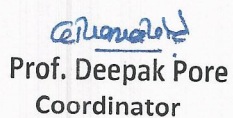 Prof. Deepak Pore
Coordinator